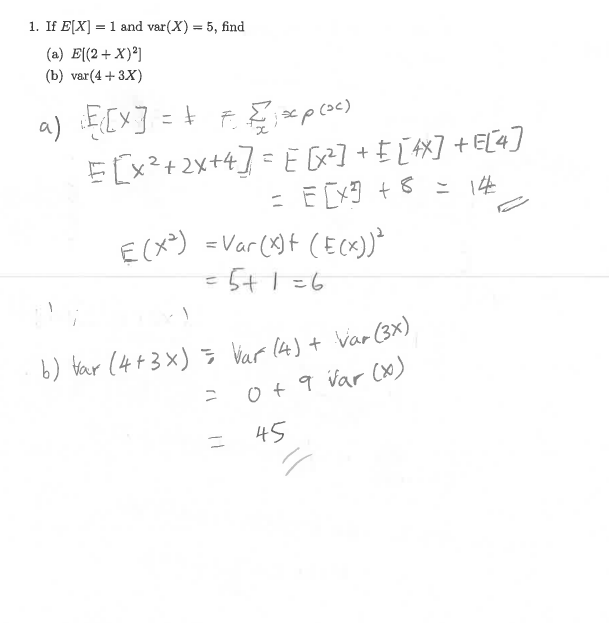 1. If E[X] = 1 and var(X) = 5, find
(a) E[(2 + X)²]
(b) var(4 + 3X)
a) E[X] = 1 = Σx x p(x)
E[x² + 2x + 4] = E[x²] + E[4x] + E[4]
= E[x²] + 8 = 14
E(x²) = Var(x) + (E(x))²
= 5 + 1 = 6
b) Var (4 + 3x) = Var (4) + Var (3x)
= 0 + 9 Var (x)
= 45